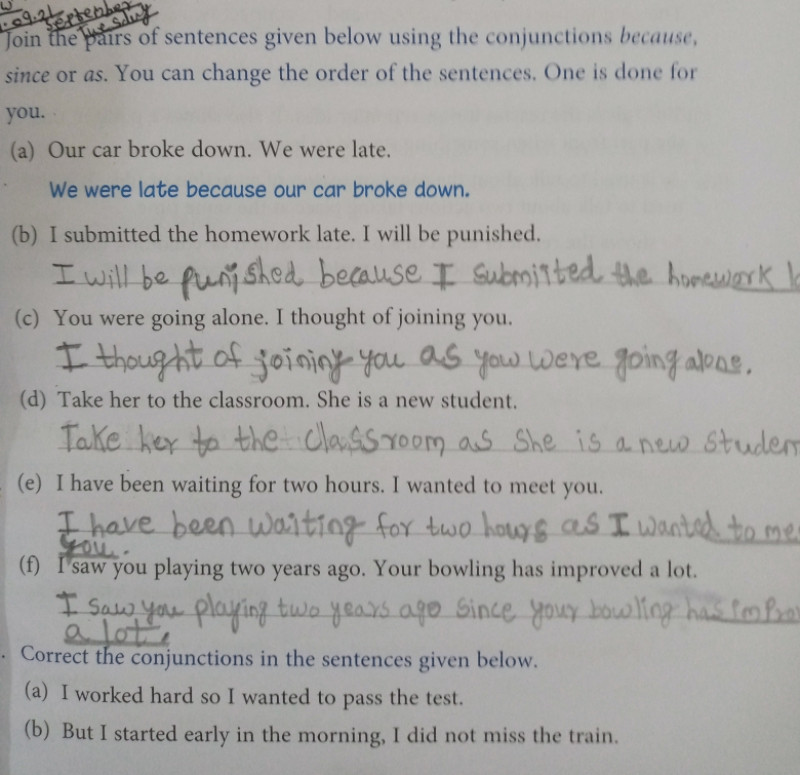 September
Tuesday
Join the pairs of sentences given below using the conjunctions because,
since or as. You can change the order of the sentences. One is done for
you.
(a) Our car broke down. We were late.
We were late because our car broke down.
(b) I submitted the homework late. I will be punished.
I will be punished because I submitted the homework
(c) You were going alone. I thought of joining you.
I thought of joining you as you were going alone.
(d) Take her to the classroom. She is a new student.
Take her to the classroom as she is a new studen
(e) I have been waiting for two hours. I wanted to meet you.
I have been waiting for two hours as I wanted to me
you.
(f) I saw you playing two years ago. Your bowling has improved a lot.
I saw you playing two years ago since your bowling has impro
a lot.
Correct the conjunctions in the sentences given below.
(a) I worked hard so I wanted to pass the test.
(b) But I started early in the morning, I did not miss the train.